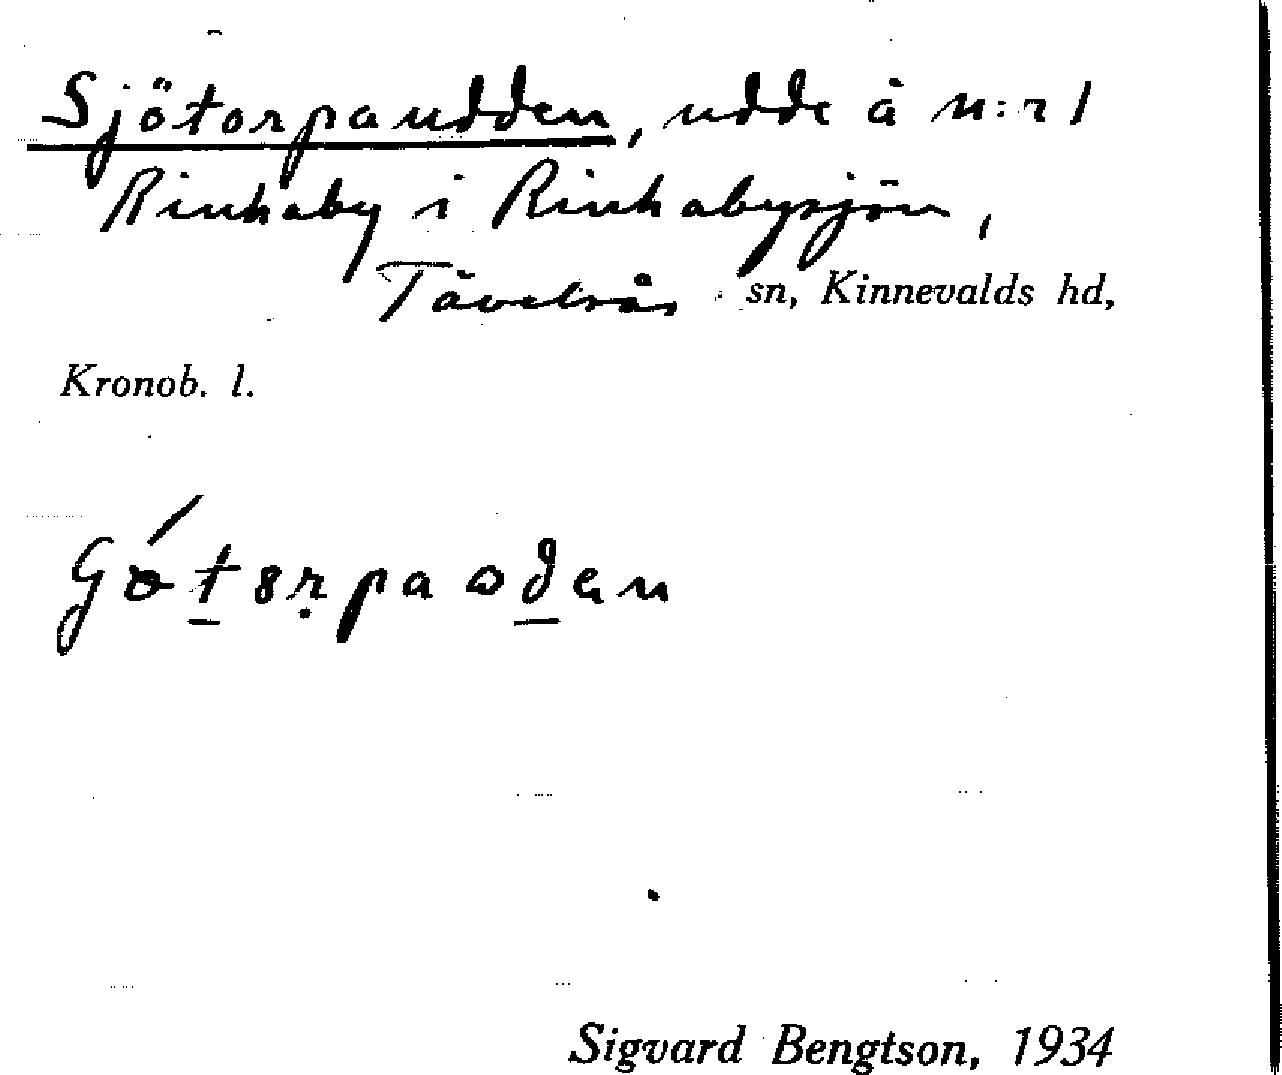 Sjötorpaudden, udde å n:r 1
Rinkaby i Rinkabysjön,
Tävelsås sn, Kinnevalds hd,
Kronob. l.
Sigvard Bengtson, 1934